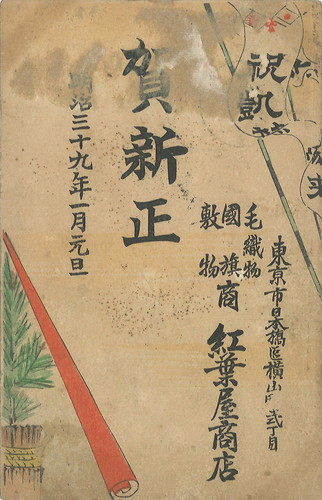 祝凱
賀新正
明治三十九年一月元旦
東京市日本橋區横山町弐丁目
毛織物
國旗商
敷物
紅葉屋商店